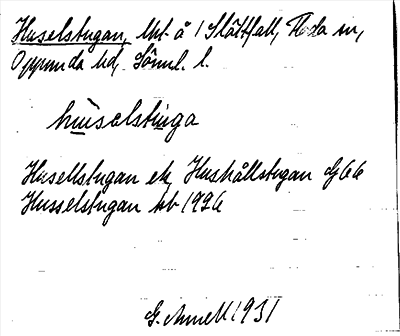 Huselstugan, lht å 1 Slättfall, Floda sn,
Oppunda hd, Söml. l.
hùselstùga
Husellstugan ek, Hushållstugan Gj 66
Husselstugan kb 1926
G. Annell 1931